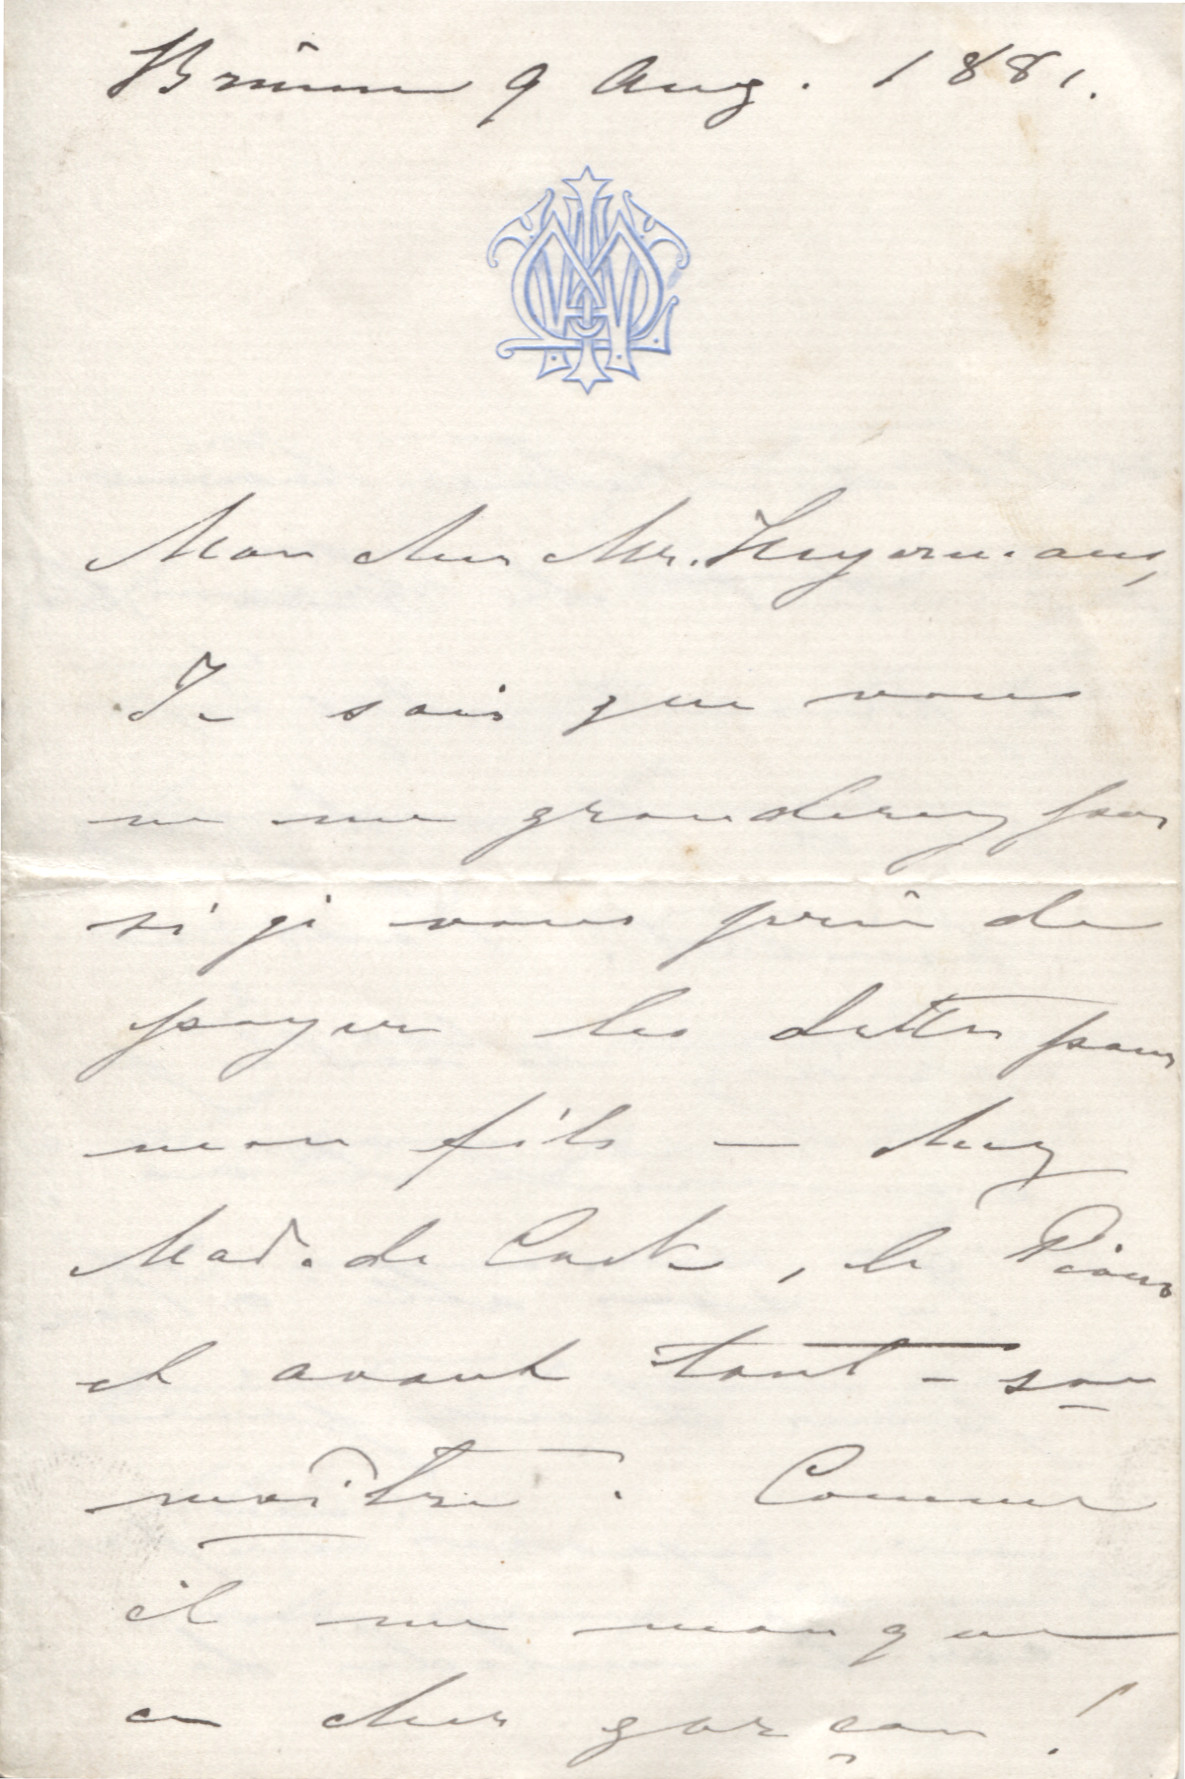 Brünn 9 Aug. 1881.
Mon cher Mr. Heyermans,
Je sais que vous
ne me gronderez pas
si je vous prie de
payer les dettes pour
mon fils — chez
Mad. de Cock, le Piano
et avant tout – son
maître. Comme
il me manque
ce cher garçon!